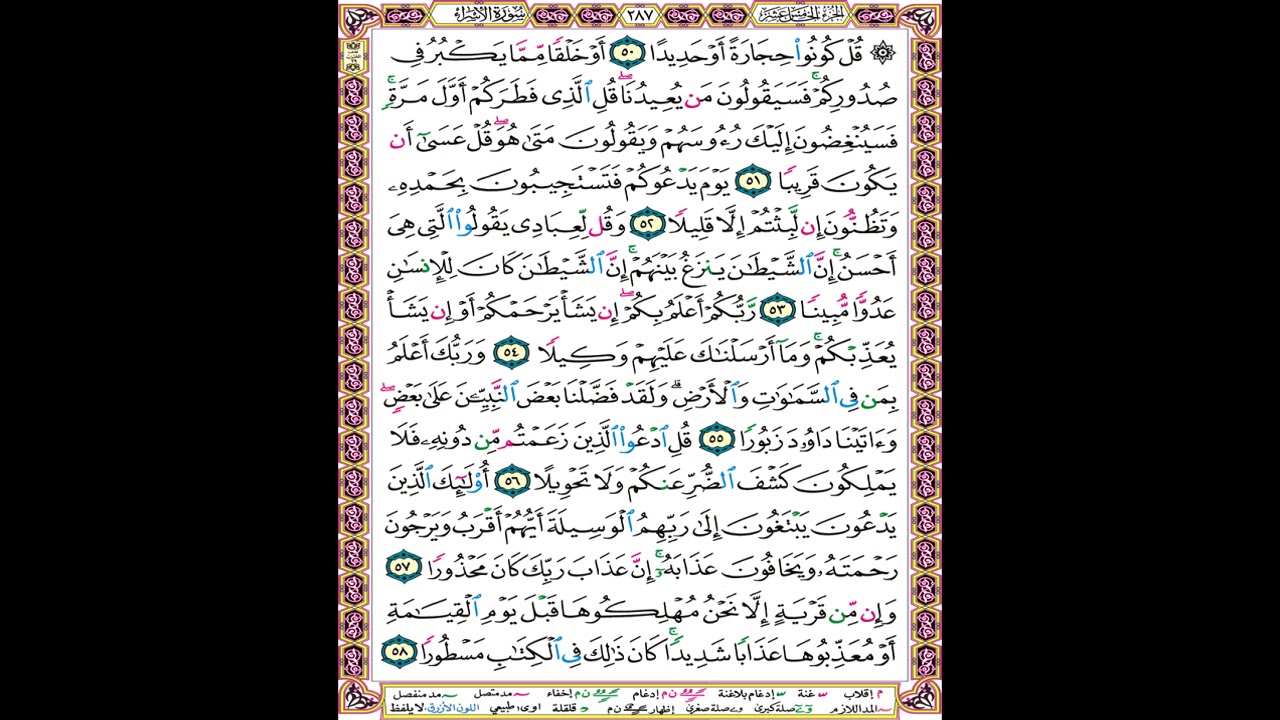 سورة الإسراء ٢٨٧ الجزء الخامس عشر
۞ قُلْ كُونُوا۟ حِجَارَةً أَوْ حَدِيدًا ٥٠ أَوْ خَلْقًا مِّمَّا يَكْبُرُ فِى
صُدُورِكُمْ ۚ فَسَيَقُولُونَ مَن يُعِيدُنَا ۖ قُلِ ٱلَّذِى فَطَرَكُمْ أَوَّلَ مَرَّةٍ ۚ
فَسَيُنْغِضُونَ إِلَيْكَ رُءُوسَهُمْ وَيَقُولُونَ مَتَىٰ هُوَ ۖ قُلْ عَسَىٰٓ أَن
يَكُونَ قَرِيبًا ٥١ يَوْمَ يَدْعُوكُمْ فَتَسْتَجِيبُونَ بِحَمْدِهِۦ
وَتَظُنُّونَ إِن لَّبِثْتُمْ إِلَّا قَلِيلًا ٥٢ وَقُل لِّعِبَادِى يَقُولُوا۟ ٱلَّتِى هِىَ
أَحْسَنُ ۚ إِنَّ ٱلشَّيْطَـٰنَ يَنزَغُ بَيْنَهُمْ ۚ إِنَّ ٱلشَّيْطَـٰنَ كَانَ لِلْإِنسَـٰنِ
عَدُوًّا مُّبِينًا ٥٣ رَّبُّكُمْ أَعْلَمُ بِكُمْ ۖ إِن يَشَأْ يَرْحَمْكُمْ أَوْ إِن يَشَأْ
يُعَذِّبْكُمْ ۚ وَمَآ أَرْسَلْنَـٰكَ عَلَيْهِمْ وَكِيلًا ٥٤ وَرَبُّكَ أَعْلَمُ
بِمَن فِى ٱلسَّمَـٰوَٰتِ وَٱلْأَرْضِ ۗ وَلَقَدْ فَضَّلْنَا بَعْضَ ٱلنَّبِيِّـۧنَ عَلَىٰ بَعْضٍ ۖ
وَءَاتَيْنَا دَاوُۥدَ زَبُورًا ٥٥ قُلِ ٱدْعُوا۟ ٱلَّذِينَ زَعَمْتُم مِّن دُونِهِۦ فَلَا
يَمْلِكُونَ كَشْفَ ٱلضُّرِّ عَنكُمْ وَلَا تَحْوِيلًا ٥٦ أُو۟لَـٰٓئِكَ ٱلَّذِينَ
يَدْعُونَ يَبْتَغُونَ إِلَىٰ رَبِّهِمُ ٱلْوَسِيلَةَ أَيُّهُمْ أَقْرَبُ وَيَرْجُونَ
رَحْمَتَهُۥ وَيَخَافُونَ عَذَابَهُۥٓ ۚ إِنَّ عَذَابَ رَبِّكَ كَانَ مَحْذُورًا ٥٧
وَإِن مِّن قَرْيَةٍ إِلَّا نَحْنُ مُهْلِكُوهَا قَبْلَ يَوْمِ ٱلْقِيَـٰمَةِ
أَوْ مُعَذِّبُوهَا عَذَابًا شَدِيدًا ۚ كَانَ ذَٰلِكَ فِى ٱلْكِتَـٰبِ مَسْطُورًا ٥٨
م إقلاب غنة إدغام بلاغنة ن م إدغام ن م إخفاء مد متصل مد منفصل
المد اللازم صلة كبرى صلة صغرى إظهار ن م قلقلة ا و ى: طبيعي اللون الأزرق: لا يلفظ